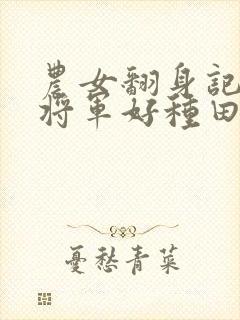 農女翻身記
將軍好種田
憂愁青菜